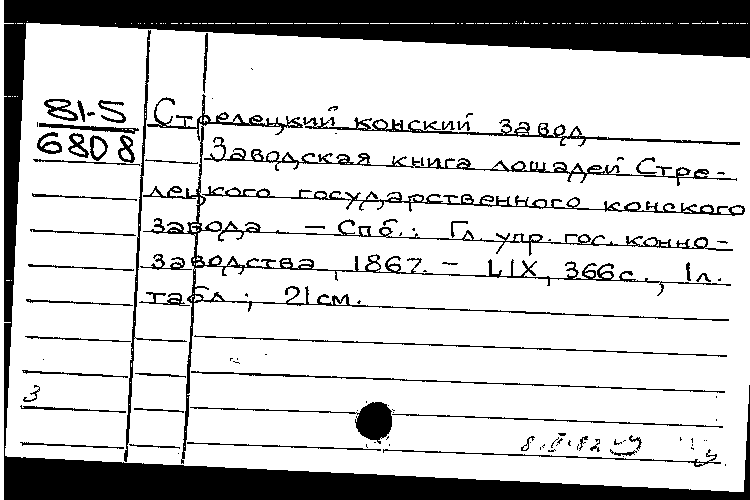 81-5 Стрелецкий конский завод
6808 Заводская книга лошадей Стре-
лецкого государственного конского
завода. - Спб.: Гл. упр. гос. конно-
заводства, 1867. - LIX, 366 с., 1 л.
табл.; 21 см.
З